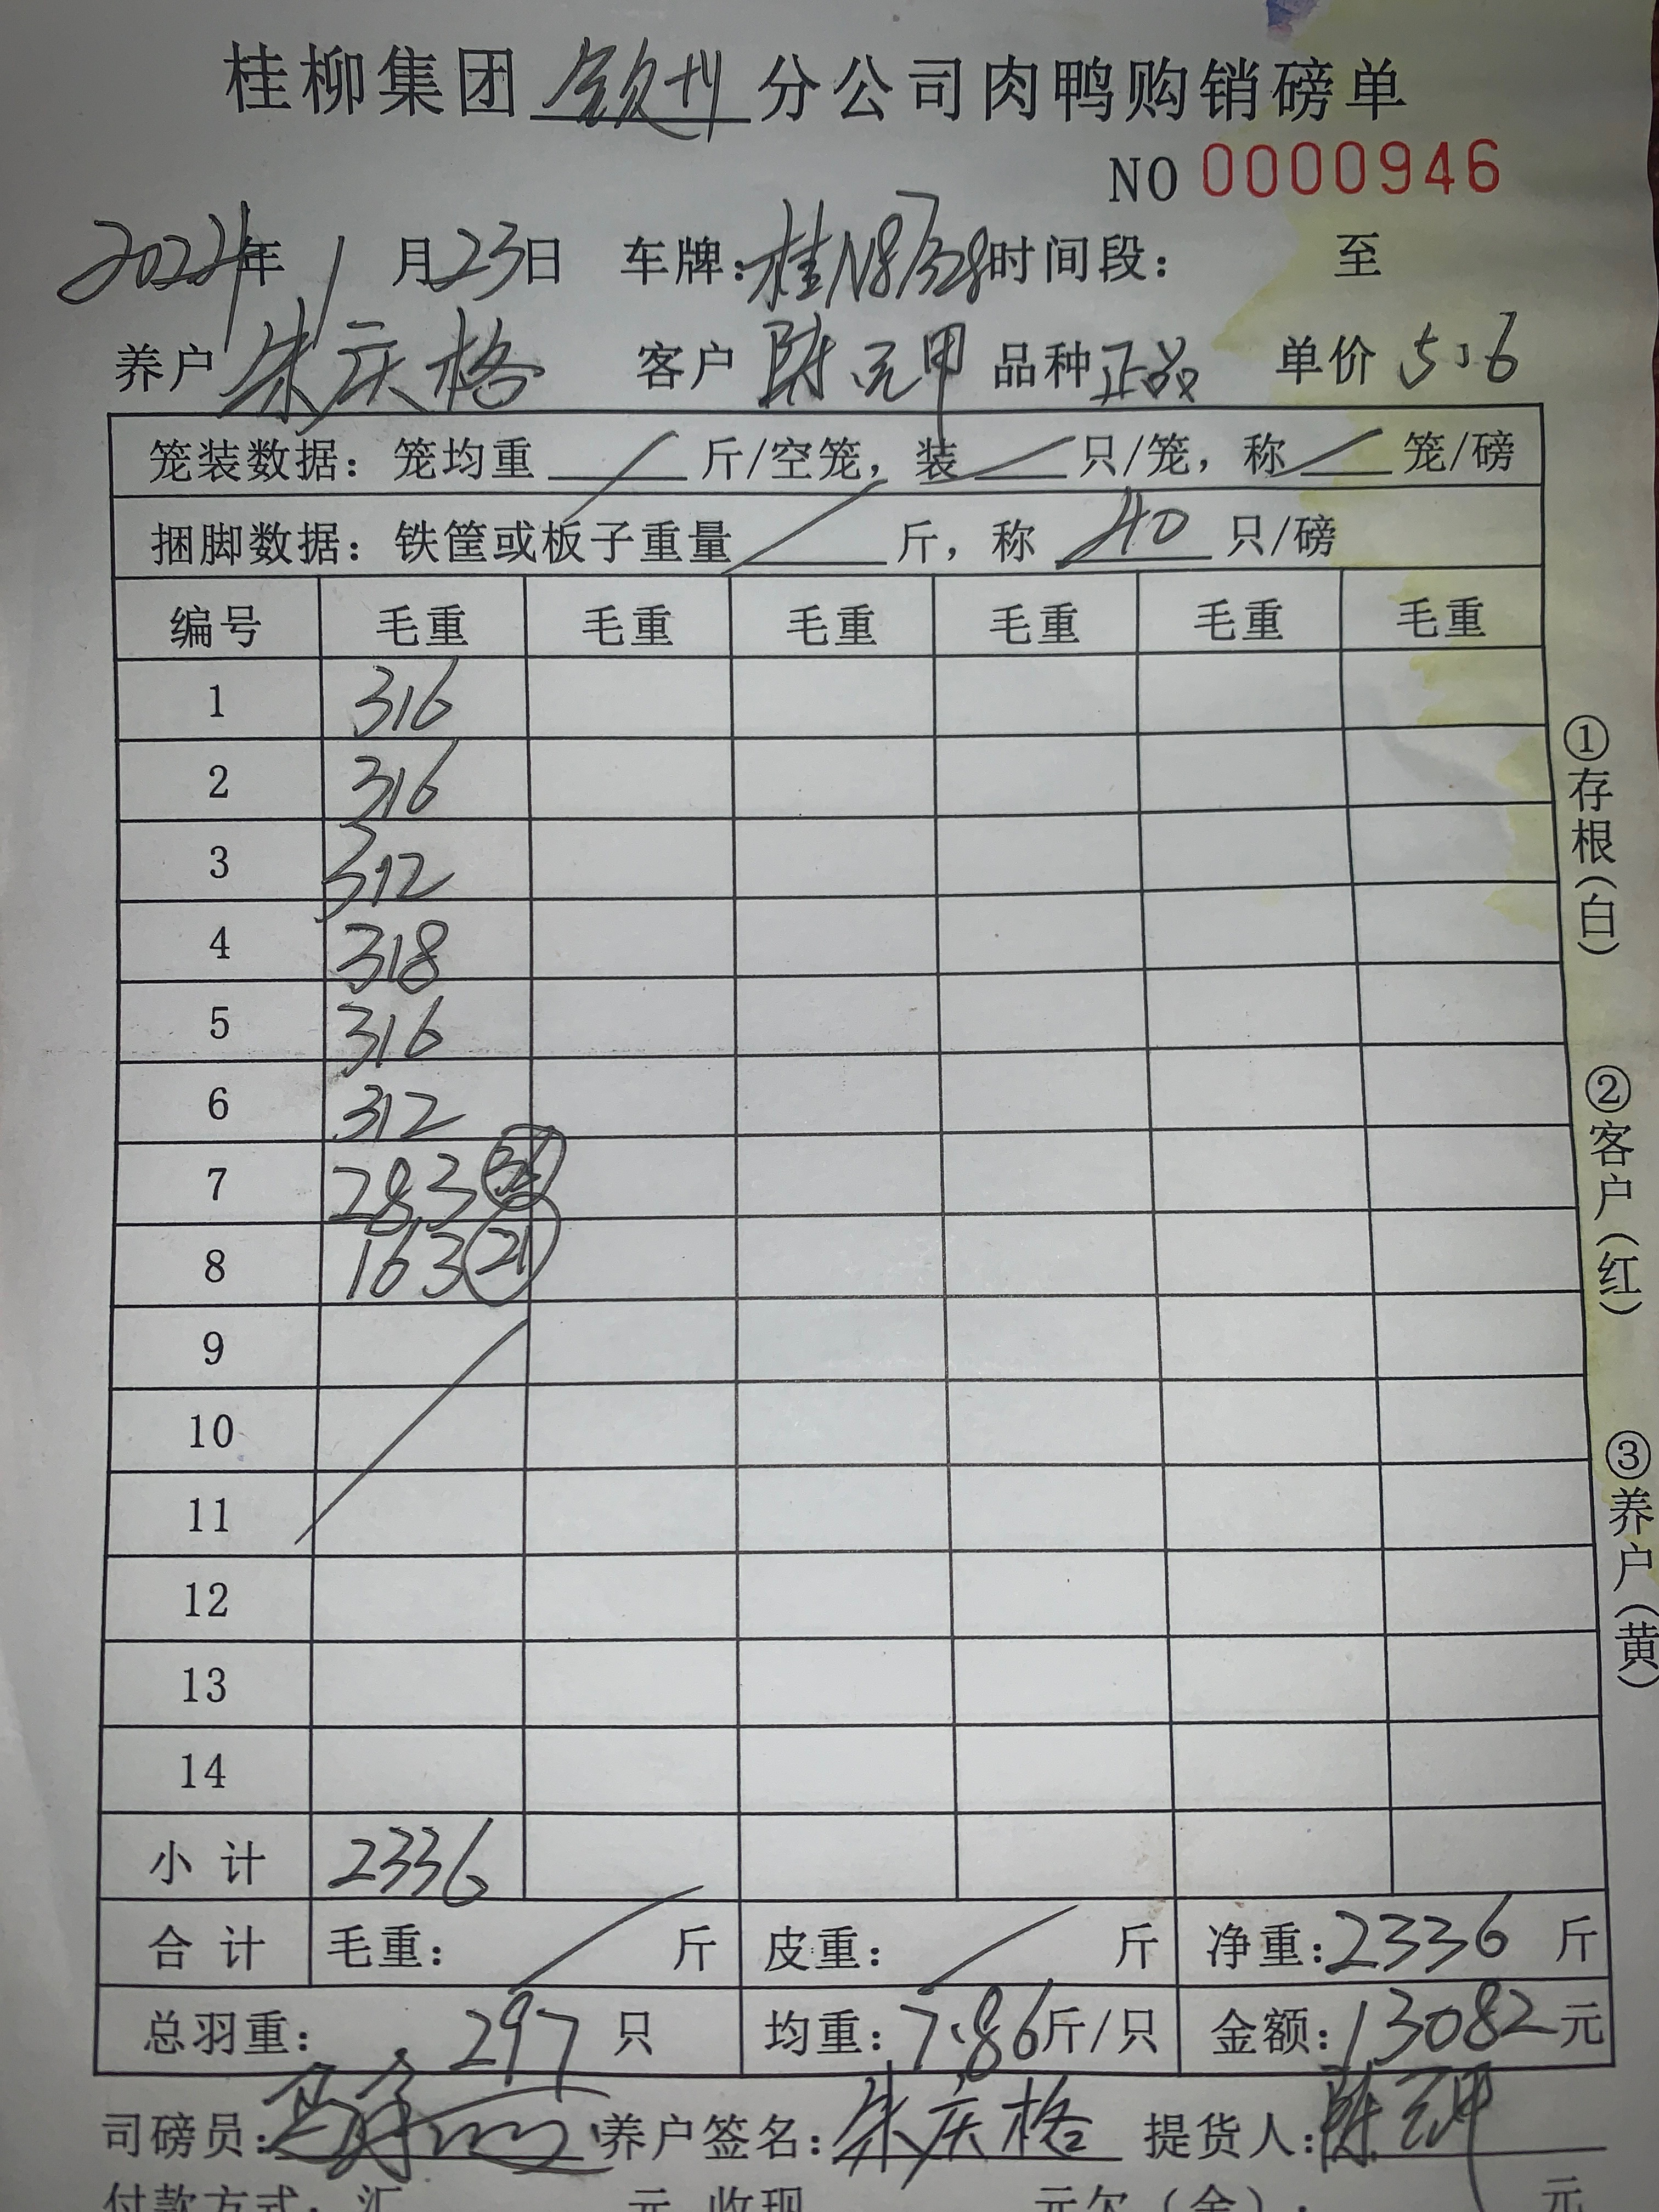 桂柳集团 钦州 分公司肉鸭购销磅单
NO 0000946
年 1 月 23 日 车牌: 桂N87328 时间段: 至
养户 朱庆格 客户 陈元甲 品种 正品 单价 5.6
笼装数据: 笼均重 / 斤/空笼, 装 / 只/笼, 称 / 笼/磅
捆脚数据: 铁筐或板子重量 / 斤, 称 40 只/磅
编号 毛重 毛重 毛重 毛重 毛重 毛重
1 316
2 316
3 312
4 318
5 316
6 312
7 283
8 163 21
9
10
11
12
13
14
小计 2336
合计 毛重: / 斤 皮重: / 斤 净重: 2336 斤
总羽重: 297 只 均重: 7.86 斤/只 金额: 13082 元
司磅员: 养户签名: 朱庆格 提货人: 陈元甲
付款方式: 汇 元 收现 元欠(余): 元
①存根(白)
②客户(红)
③养户(黄)